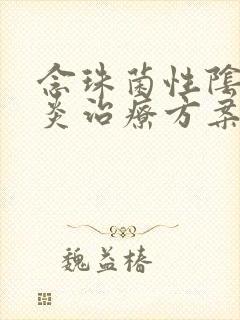 念珠菌性陰
炎治療方案
魏益椿